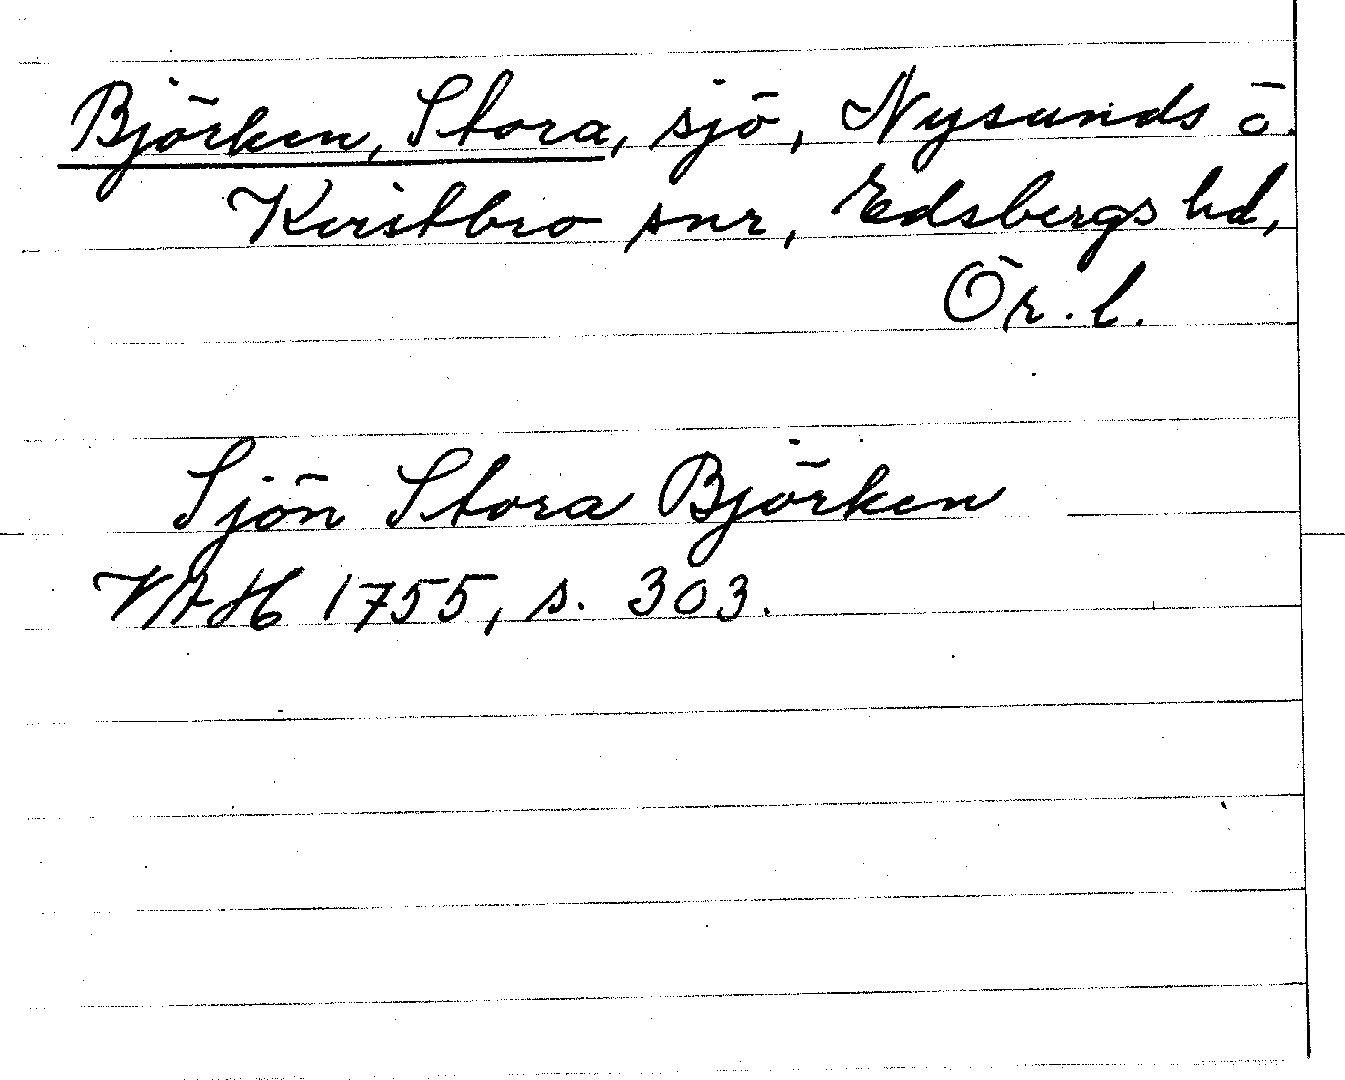 Björken, Stora, sjö, Nysunds o.
Kvistbro snr, Edsbergs hd,
Ör. l.
Sjön Stora Björken
VAH 1755, s. 303.